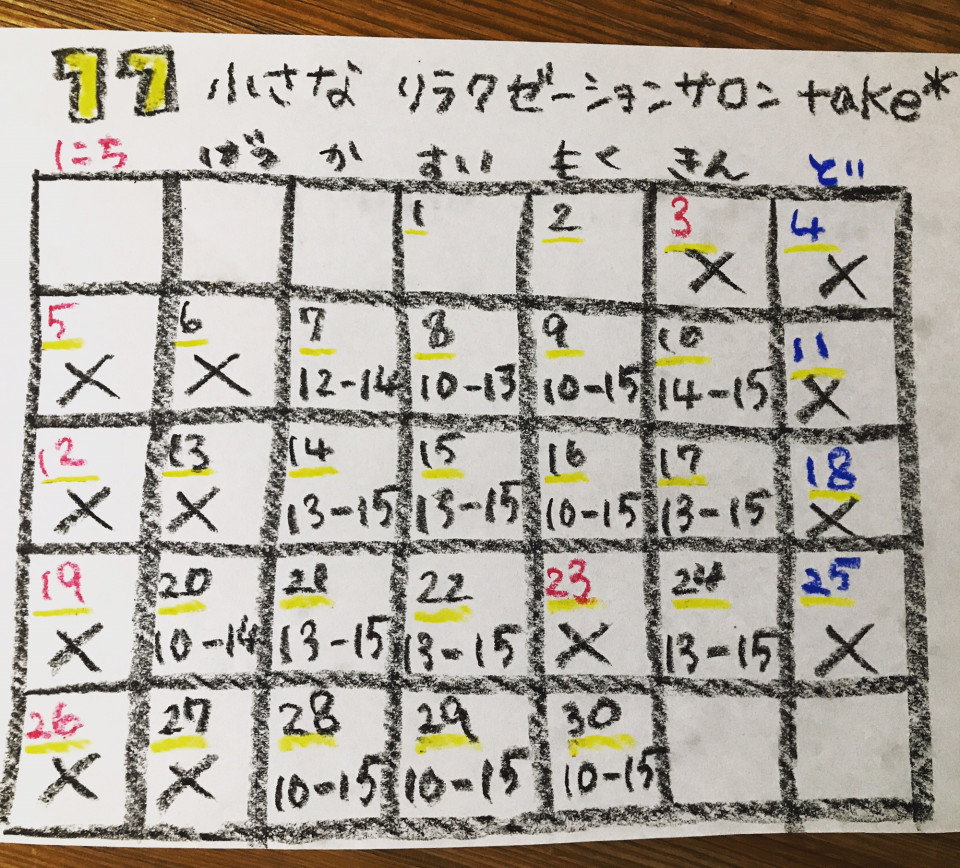 11 小さな リラクゼーションサロン take*
にち げつ か すい もく きん ど
1 2 3 4
× ×
5 6 7 8 9 10 11
× × 12-14 10-13 10-15 14-15 ×
12 13 14 15 16 17 18
× × 13-15 13-15 10-15 13-15 ×
19 20 21 22 23 24 25
× 10-14 13-15 13-15 × 13-15 ×
26 27 28 29 30
× × 10-15 10-15 10-15